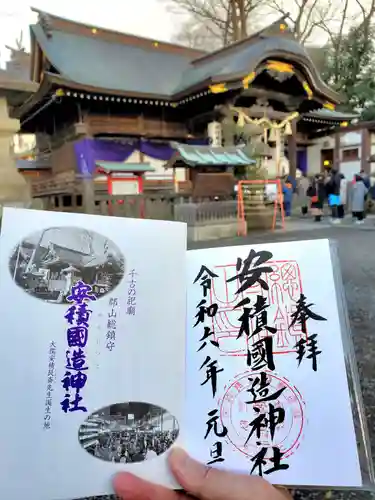 奉拝
安積國造神社
令和六年元旦
千古の祀廟
郡山総鎮守
安積國造神社
大儒安積艮斎先生誕生の地